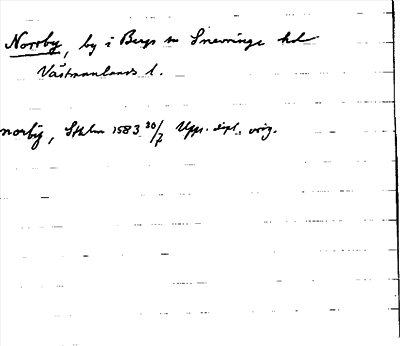 Norrby, by i Bergs sn Snevringe hd
Västmanlands l.
norby, Sthlm 1583 20/7 Upps. dipl. orig.